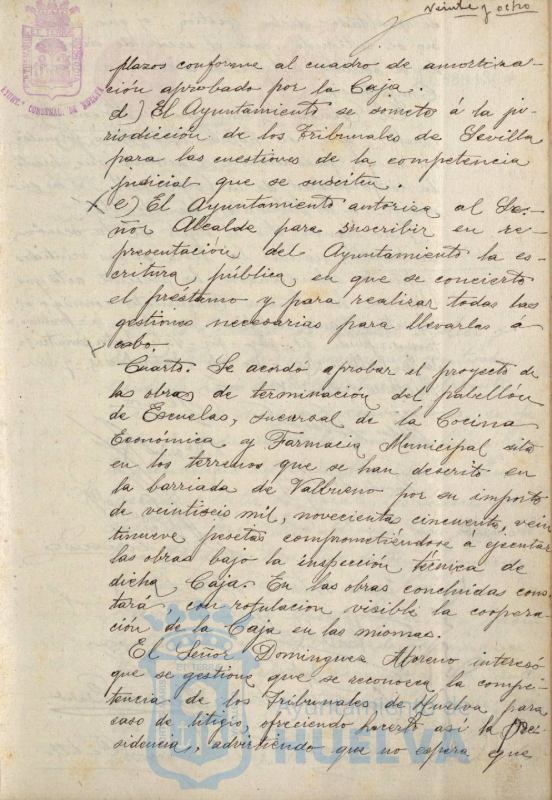 veinte y ocho
plazos conforme al cuadro de amortiza-
ción aprobado por la Caja.
d) El Ayuntamiento se somete á la ju-
risdicción de los Tribunales de Sevilla
para las cuestiones de la competencia
judicial que se susciten.
e) El Ayuntamiento autoriza al Se-
ñor Alcalde para suscribir en re-
presentación del Ayuntamiento la es-
critura pública, en que se concierte
el préstamo y para realizar todas las
gestiones necesarias para llevarlas á
cabo.
Cuarto. Se acordó aprobar el proyecto de
las obras de terminación del pabellón
de Escuelas, sucursal de la Cocina
Económica y Farmacia Municipal sita
en los terrenos que se han descrito en
la barriada de Valbueno por su importe
de veintiseis mil, novecientas cincuenta, vein
tinueve pesetas comprometiéndose á ejecutar
las obras bajo la inspección técnica de
dicha Caja. En las obras concluidas cons
tará, con rotulación visible la coopera-
ción de la Caja en las mismas.
El Señor Dominguez Moreno interesó
que se gestione que se reconozca la compe-
tencia de los Tribunales de Huelva para
caso de litigio, ofreciendo hacerlo así la Pre-
sidencia, advirtiendo que no espera que
Ayuntamiento
HUELVA